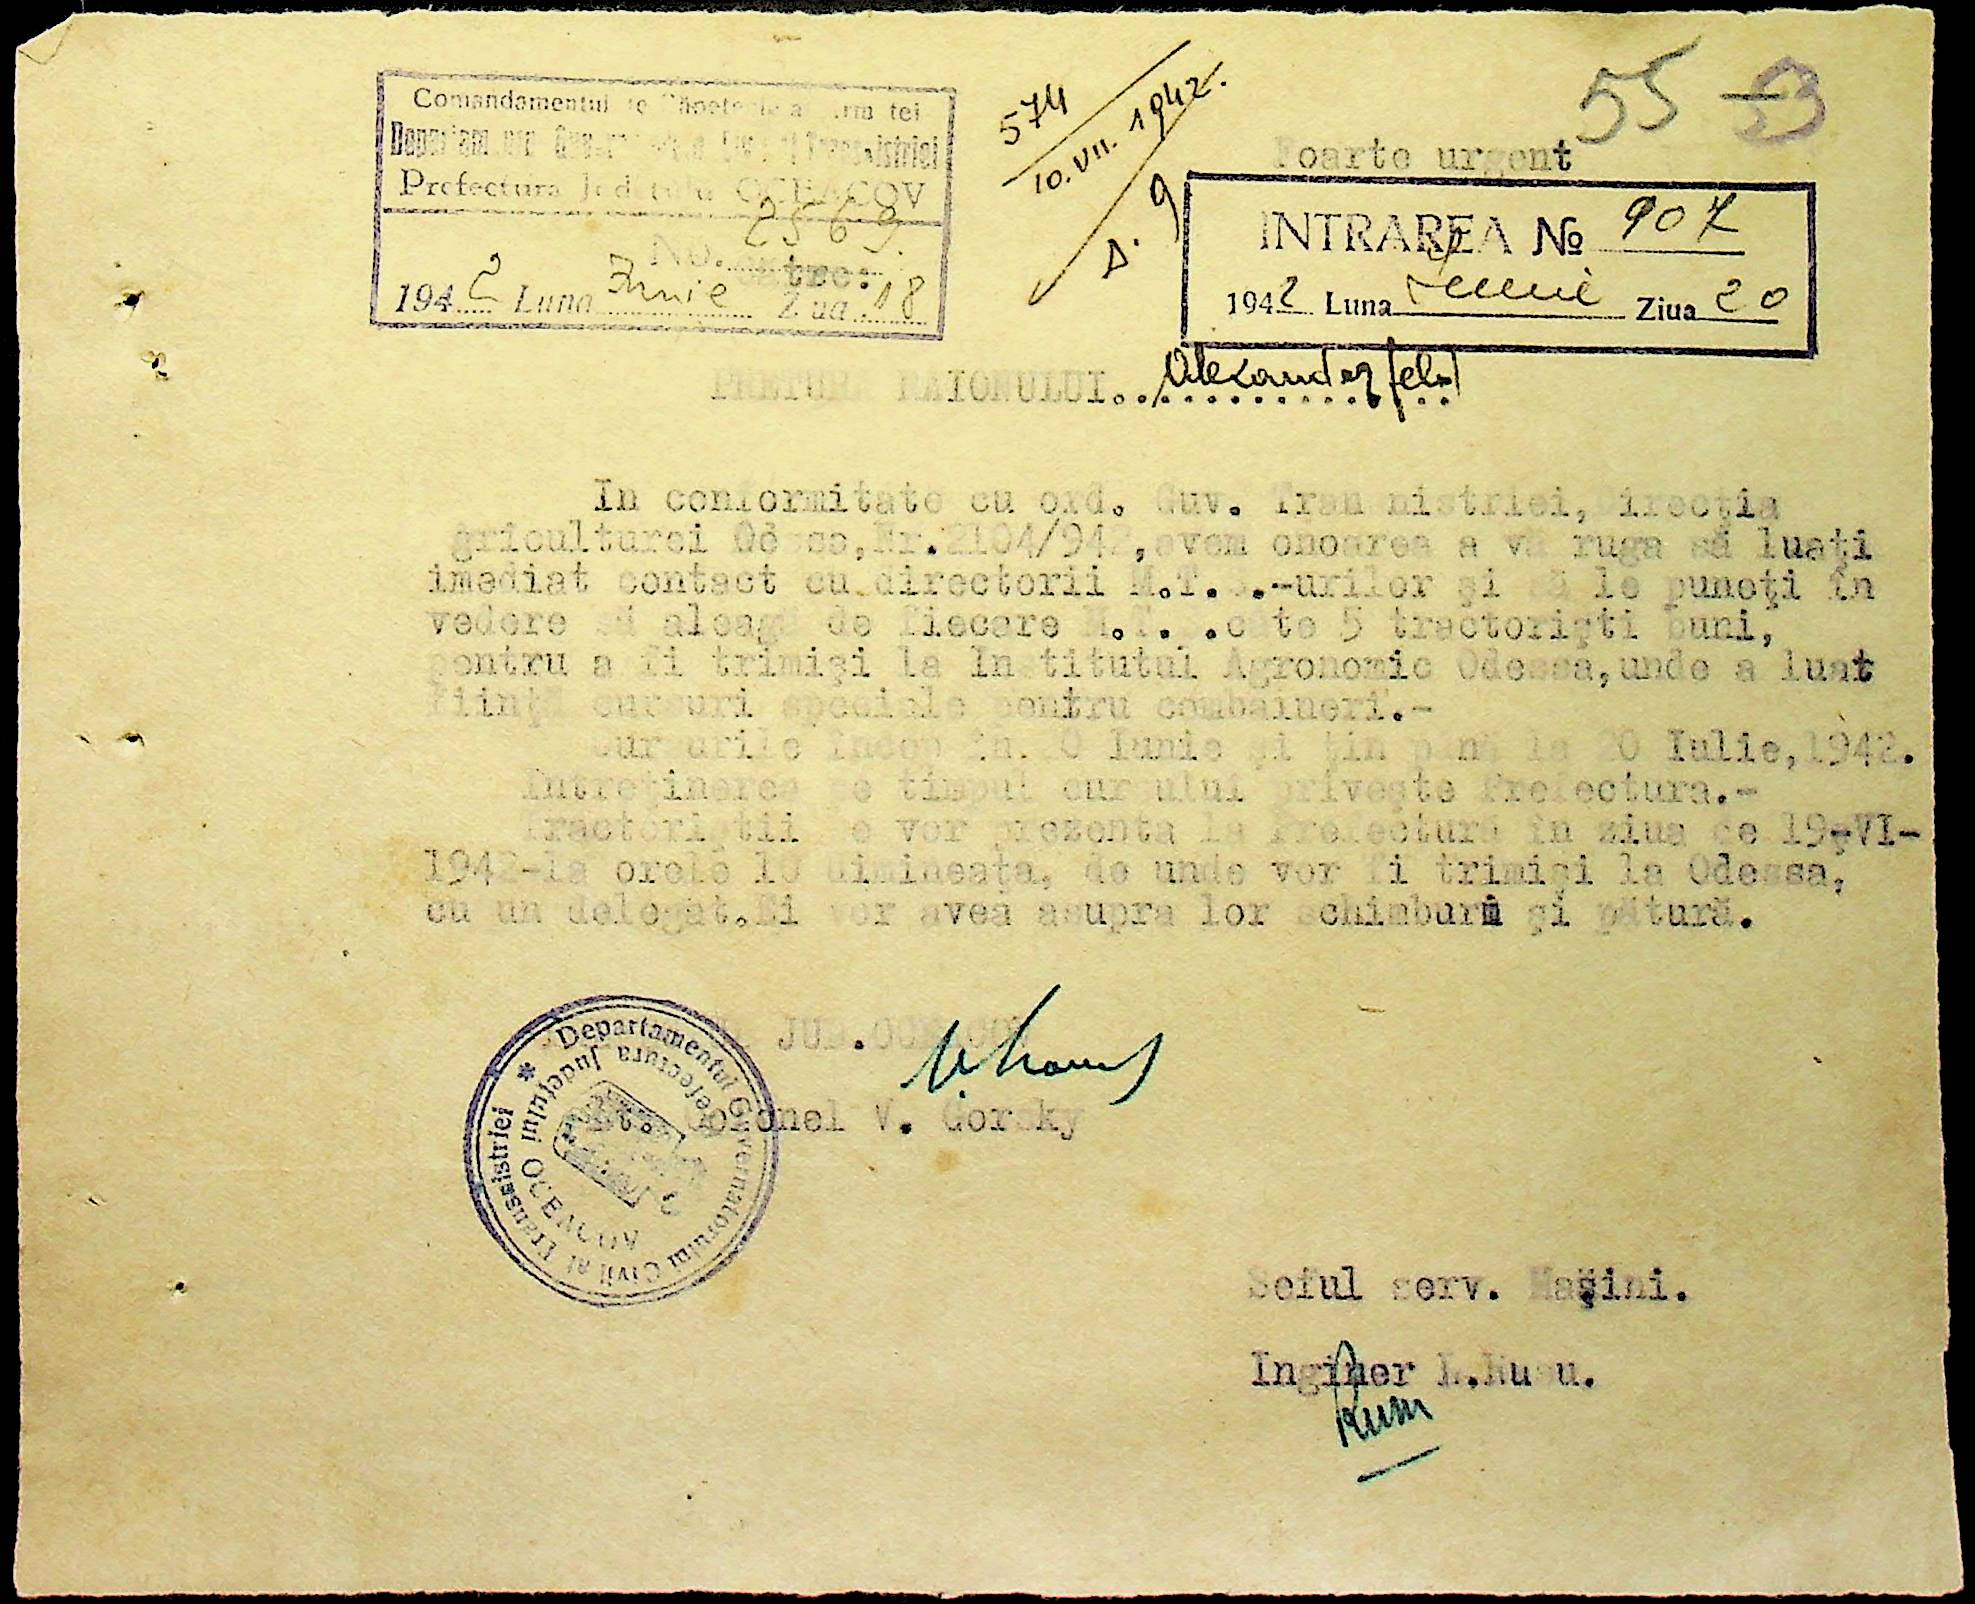 Comandamentul de Căpetenie a Armatei
Prefectura Județului OCEACOV
No. 2569.
1942 Luna Iunie Ziua 18
Către:
574
10.VII.1942.
D. 9
55
Foarte urgent
INTRAREA № 907
1942 Luna Iunie Ziua 20
PRETURA RAIONULUI..Alexanderfeld
In conformitate cu ord. Guv. Transnistriei, Direcţia
Agriculturei Odessa, Nr.2104/942, avem onoarea a vă ruga să luaţi
imediat contact cu directorii M.T.S.-urilor şi să le puneţi în
vedere să aleagă de fiecare M.T.S. câte 5 tractorişti buni,
pentru a fi trimişi la Institutul Agronomic Odessa, unde a luat
fiinţă cursuri speciale pentru combaineri.-
Cursurile încep în. 20 Iunie şi ţin până la 20 Iulie, 1942.
Intreţinerea pe timpul cursului priveşte Prefectura.-
Tractoriştii se vor prezenta la Prefectură în ziua de 19-VI-
1942-la orele 10 dimineaţa, de unde vor fi trimişi la Odessa,
cu un delegat. Ei vor avea asupra lor schimburi şi pătură.
JUD. OCEACOV
Colonel V. Gorsky
Departamentul Guvernatorului Civil al Transnistriei
Prefectura Judeţului OCEACOV
Seful serv. Maşini.
Inginer Rusu.